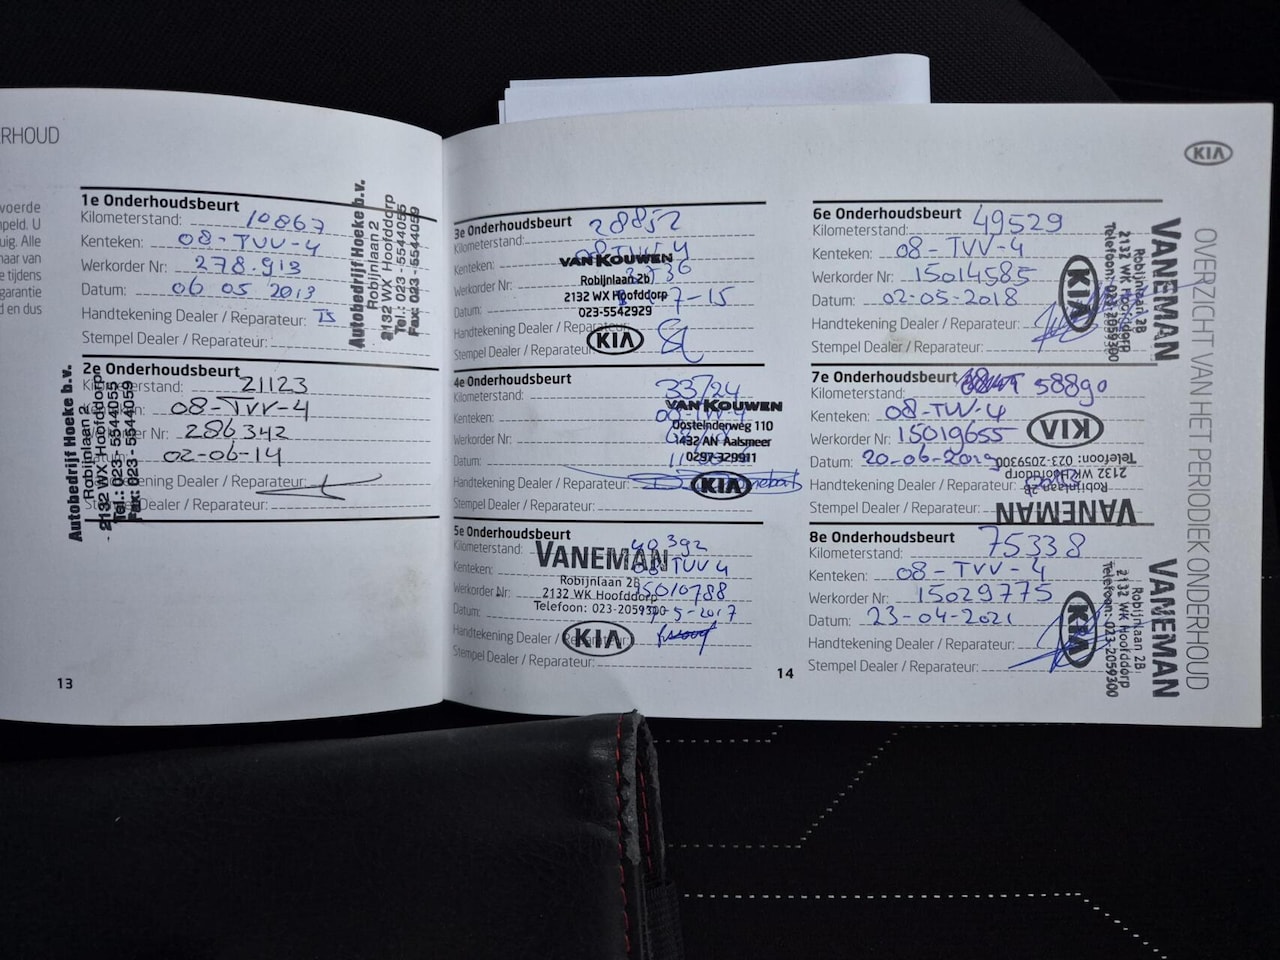 RHOUD
voerde
npeld. U
uig. Alle
naar van
e tijdens
garantie
d en dus
1e Onderhoudsbeurt
Kilometerstand: 10867
Kenteken: 08-TVV-4
Werkorder Nr: 278.913
Datum: 06 05 2013
Handtekening Dealer / Reparateur:
Stempel Dealer / Reparateur:
Autobedrijf Hoeke b.v.
Robijnlaan 2
2132 WX Hoofddorp
Tel.: 023 - 5544055
Fax: 023 - 5544059
2e Onderhoudsbeurt
Kilometerstand: 21123
Kenteken: 08-TVV-4
Nr: 286342
02-06-14
kening Dealer / Reparateur:
Dealer / Reparateur:
Autobedrijf Hoeke b.v.
Robijnlaan 2
2132 WX Hoofddorp
Tel.: 023 - 5544055
Fax: 023 - 5544059
13
3e Onderhoudsbeurt
Kilometerstand: 28852
Kenteken:
Werkorder Nr:
Datum: 7-15
Handtekening Dealer / Reparateur:
Stempel Dealer / Reparateur:
VAN KOUWEN
Robijnlaan 2b
2132 WX Hoofddorp
023-5542929
KIA
4e Onderhoudsbeurt
Kilometerstand: 33724
Kenteken:
Werkorder Nr:
Datum:
Handtekening Dealer / Reparateur:
Stempel Dealer / Reparateur:
VAN KOUWEN
Oosteinderweg 110
1432 AN Aalsmeer
0297-329911
KIA
5e Onderhoudsbeurt
Kilometerstand: 40392
Kenteken: 08 TVV 4
Werkorder Nr: 15010788
Datum: 5-2017
Handtekening Dealer / Reparateur:
Stempel Dealer / Reparateur:
VANEMAN
Robijnlaan 2B
2132 WK Hoofddorp
Telefoon: 023-2059300
KIA
14
KIA
6e Onderhoudsbeurt
Kilometerstand: 49529
Kenteken: 08-TVV-4
Werkorder Nr: 15014585
Datum: 02-05-2018
Handtekening Dealer / Reparateur:
Stempel Dealer / Reparateur:
VANEMAN
Robijnlaan 2B
2132 WK Hoofddorp
Telefoon: 023-2059300
KIA
7e Onderhoudsbeurt
Kilometerstand: 58890
Kenteken: 08-TVV-4
Werkorder Nr: 15019655
Datum: 20-06-2019
Handtekening Dealer / Reparateur:
Stempel Dealer / Reparateur:
VANEMAN
Robijnlaan 2B
2132 WK Hoofddorp
Telefoon: 023-2059300
KIA
8e Onderhoudsbeurt
Kilometerstand: 75338
Kenteken: 08-TVV-4
Werkorder Nr: 15029775
Datum: 23-04-2021
Handtekening Dealer / Reparateur:
Stempel Dealer / Reparateur:
VANEMAN
Robijnlaan 2B
2132 WK Hoofddorp
Telefoon: 023-2059300
KIA
OVERZICHT VAN HET PERIODIEK ONDERHOUD